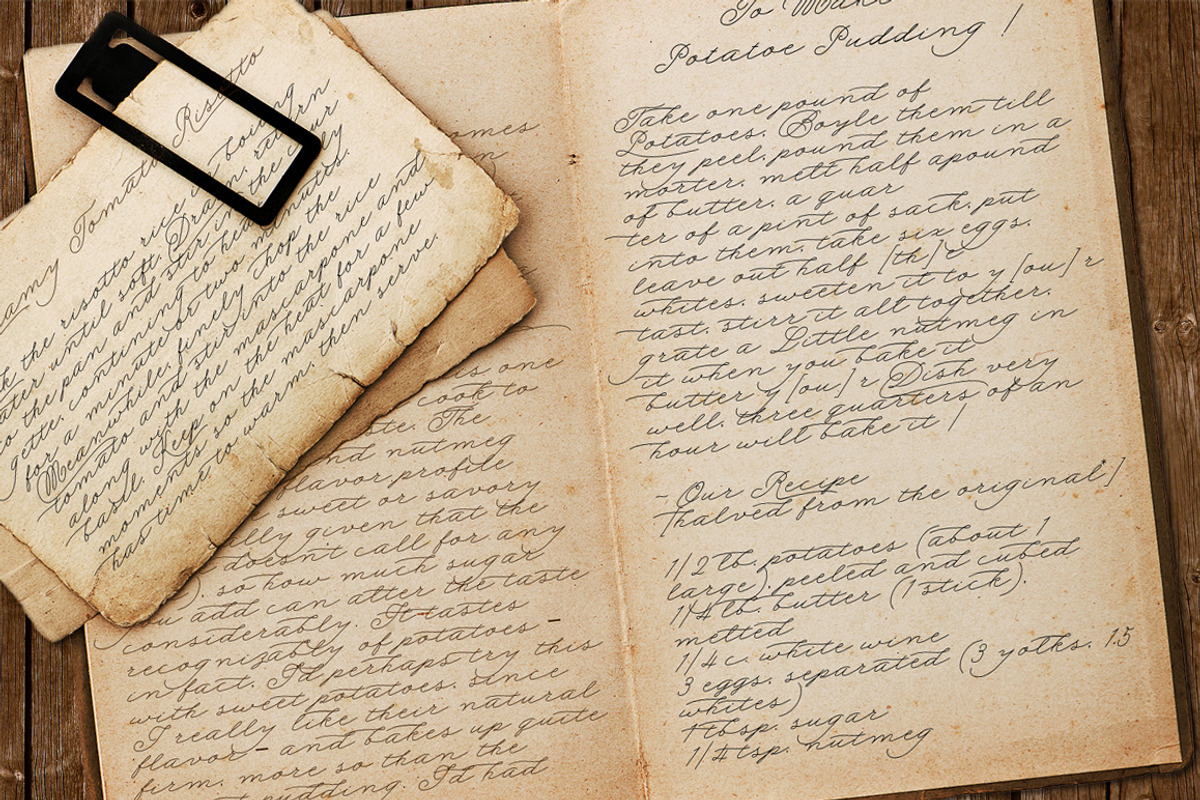 Creamy Tomato Risotto
the risotto rice in boiling
water until soft. Drain, return
to the pan and stir in the cour
gette, continuing to heat gently
for a minute or two minutes.
Meanwhile, finely chop the
tomato and stir into the rice
along with the mascarpone and
basil. Keep on the heat for a few
moments so the mascarpone
has time to warm, then serve.
omes
is one
cook to
te. The
and nutmeg
flavor profile
sweet or savory
lly given that the
doesn't call for any
), so how much sugar
you add can alter the taste
considerably. It tastes
recognizably of potatoes –
in fact, I'd perhaps try this
with sweet potatoes, since
I really like their natural
flavor – and bakes up quite
firm, more so than the
pudding. I'd had
To Make
Potatoe Pudding /
Take one pound of
Potatoes. Boyle them till
they peel. pound them in a
morter. melt half apound
of butter. a quar
ter of a pint of sack. put
into them. take six eggs.
leave out half [th]t
whites. sweeten it to y[ou]r
tast. stirr it alt together.
grate a Little nutmeg in
it when you bake it
butter y[ou]r Dish very
well. three quarters of an
hour will bake it /
- Our Recipe
[halved from the original]
1/2 lb. potatoes (about 1
large), peeled and cubed
1/4 lb. butter (1 stick),
melted
1/4 c. white wine
3 eggs, separated (3 yolks, 1.5
whites)
1 tbsp. sugar
1/4 tsp. nutmeg